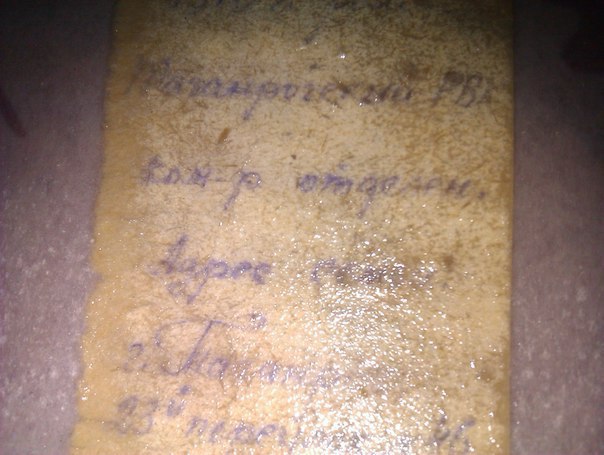 Таганрогский РВК
ком-р отделен.
Адрес семьи:
г. Таганрог
23й переулок